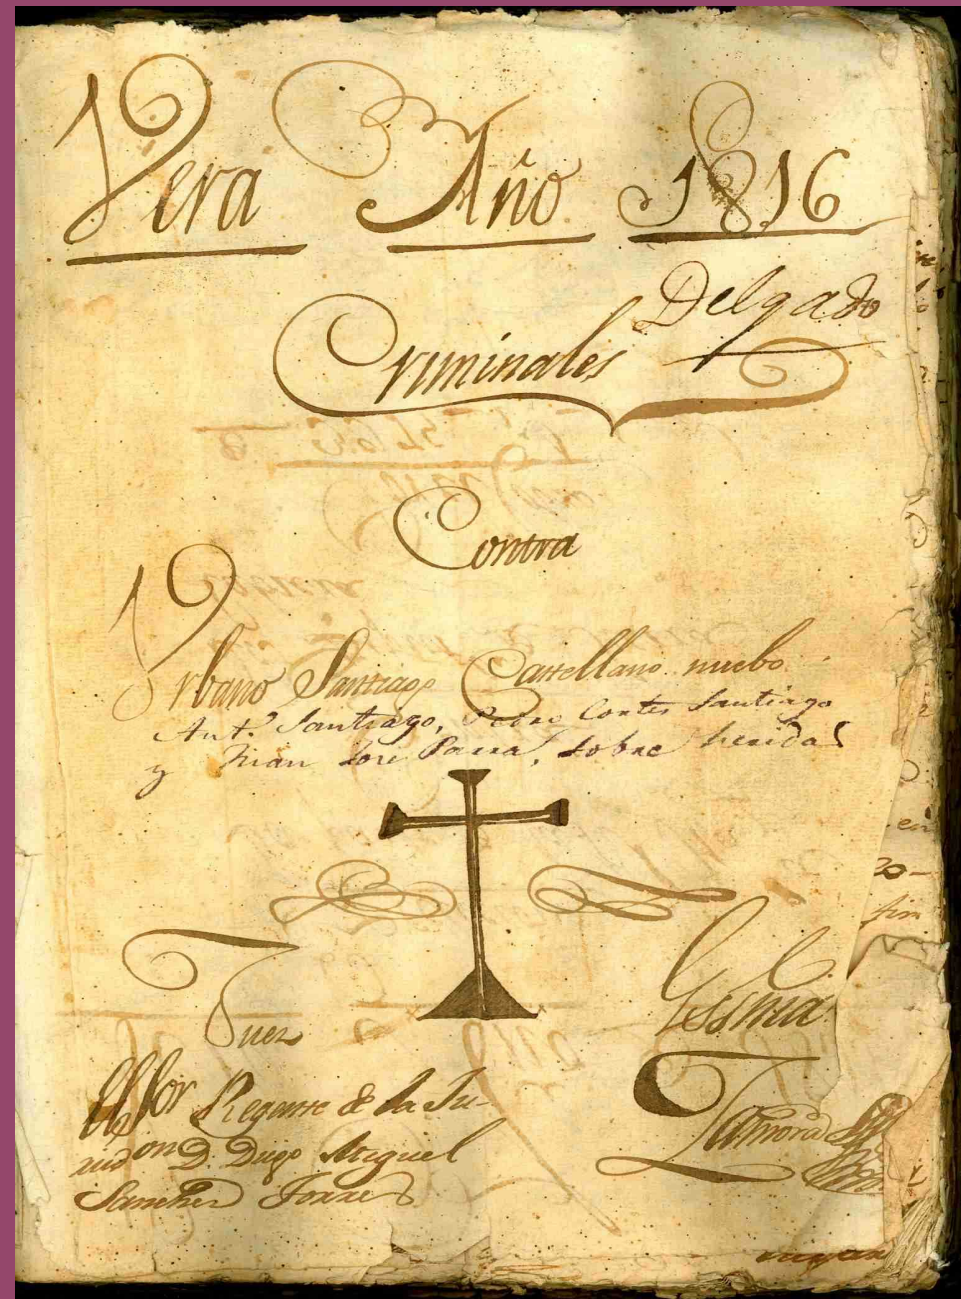 Vera Año 1816
Delgado
Criminales
Contra
Vrbano Santiago Castellano nuebo
Ant.º Santiago, Pedro Cortes Santiago
y Juan José Parra, sobre heridas
Juez
El Sor Regente de la Ju-
risd.on D. Diego Miguel
Sanchez Torres
Essnia
Zamora